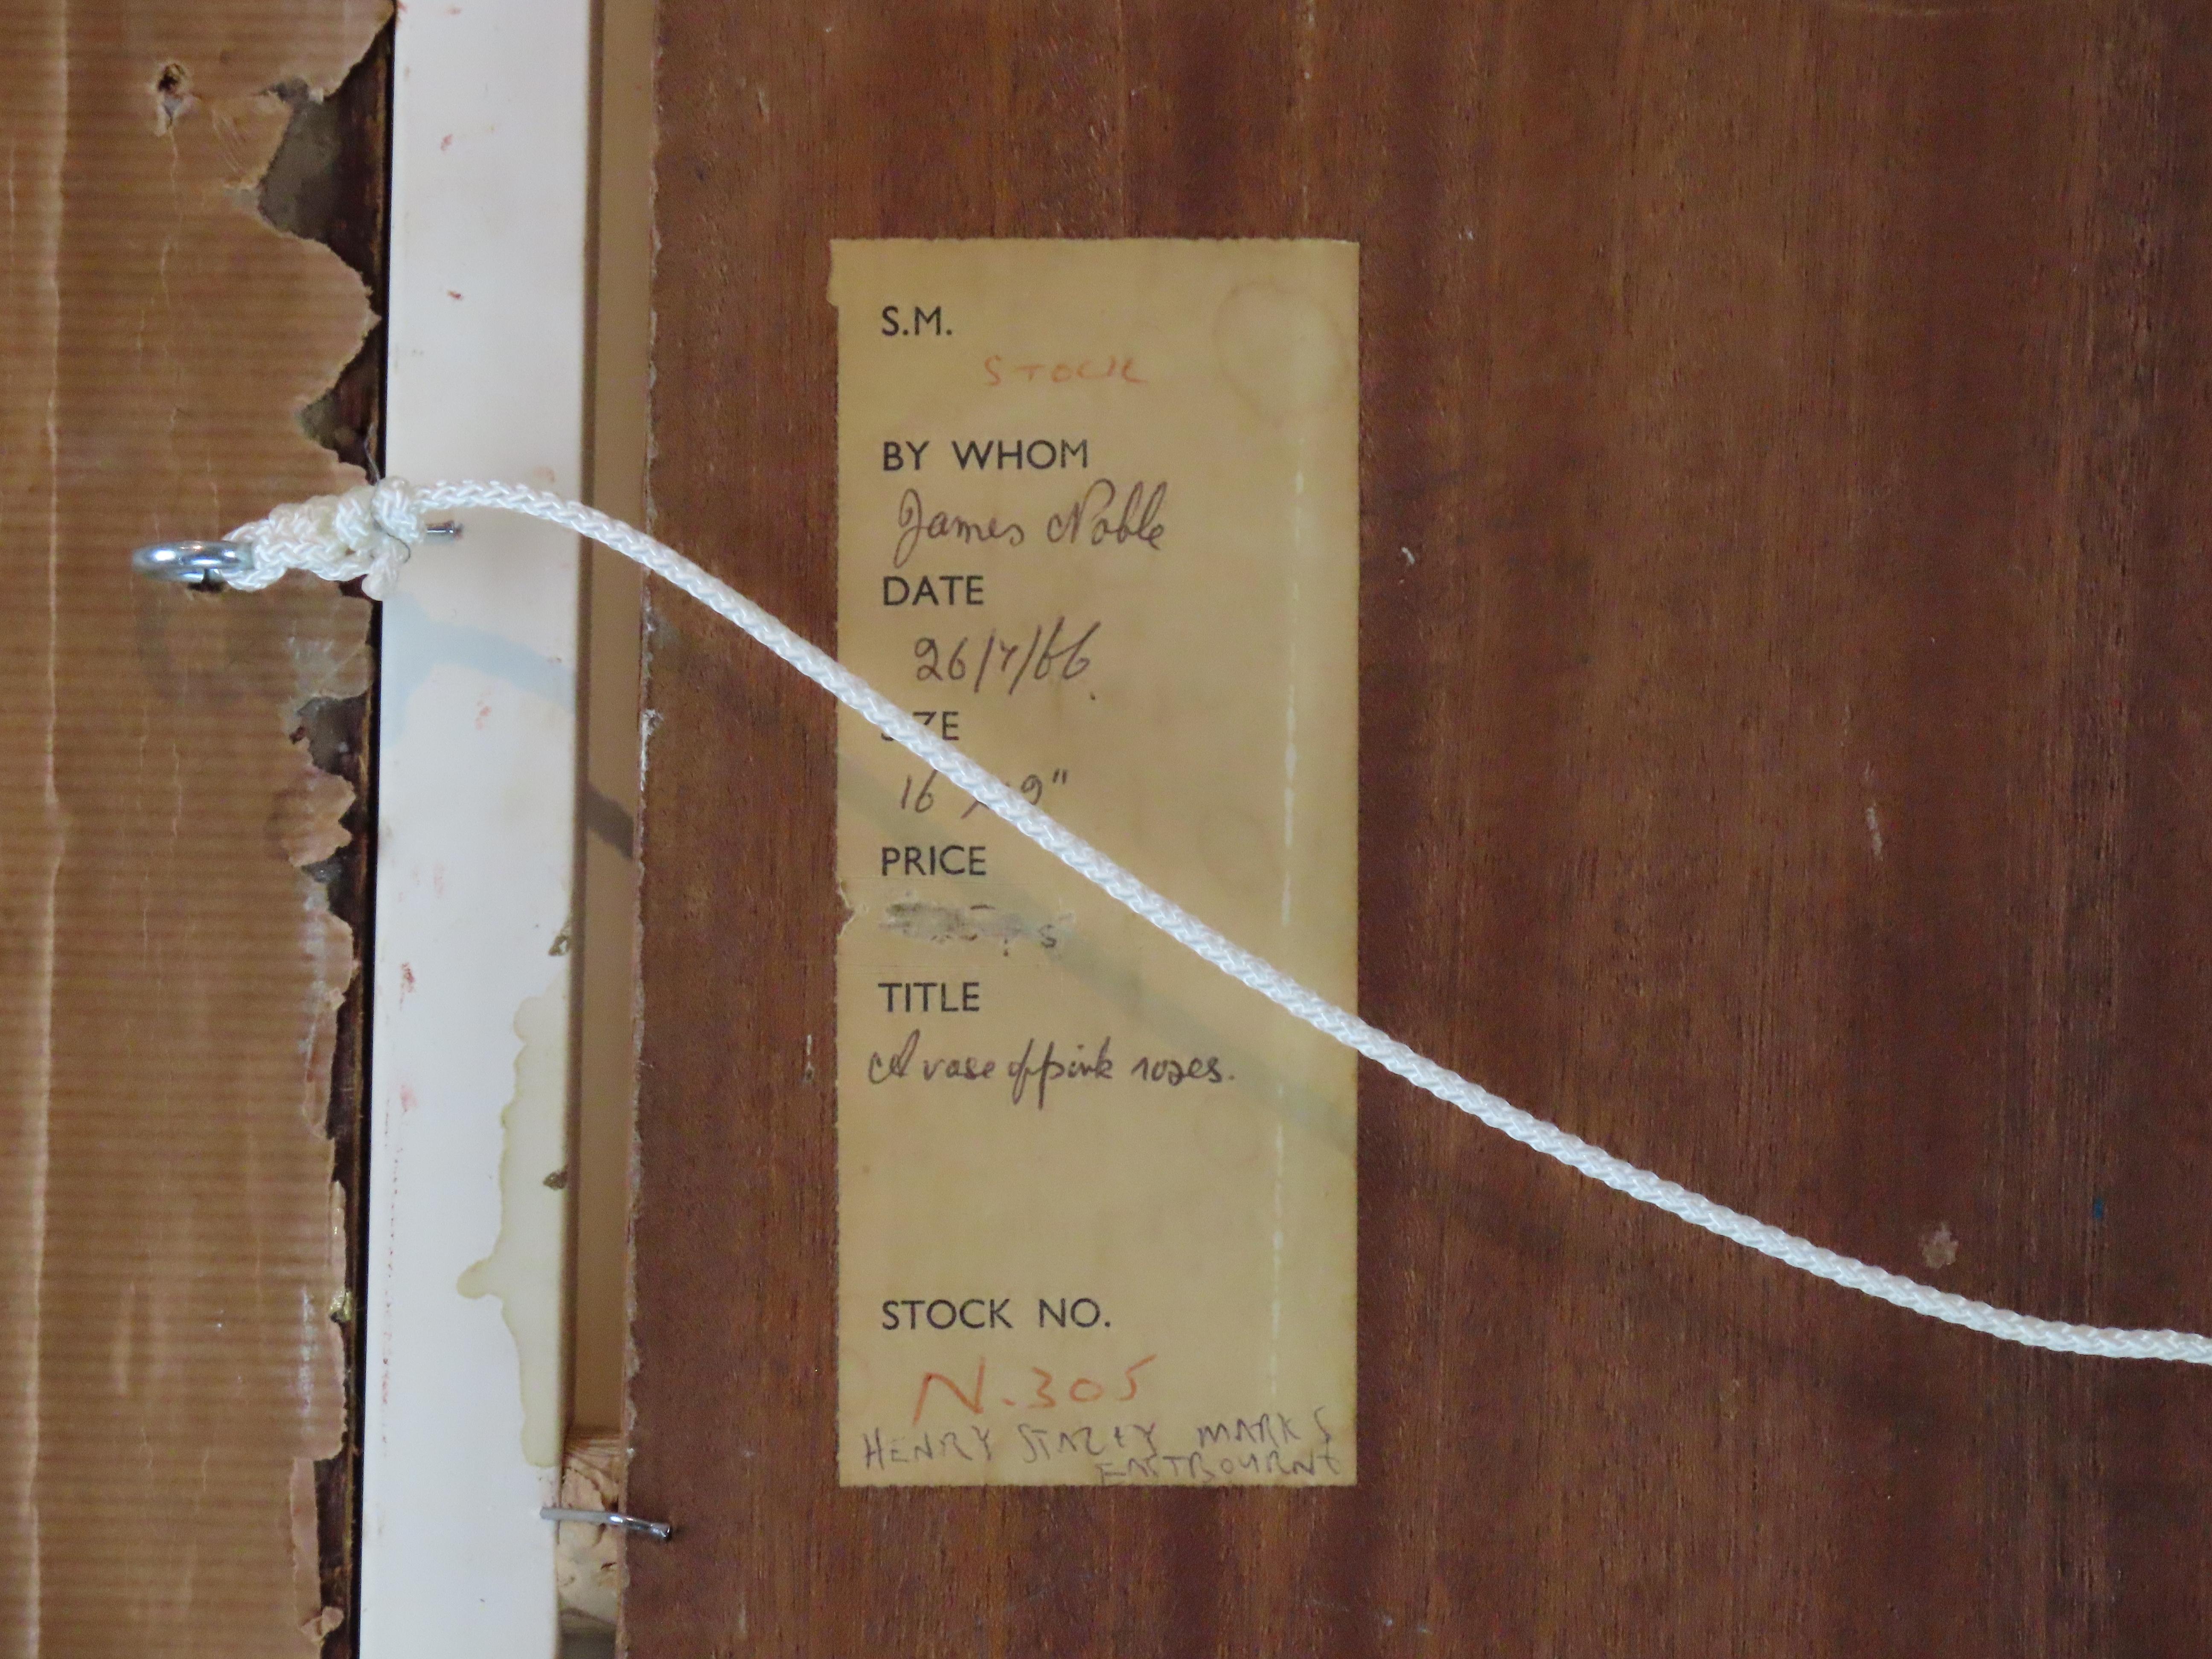 S.M.
STOCK
BY WHOM
James Noble
DATE
26/7/66.
SIZE
16 x 9"
PRICE
TITLE
A vase of pink roses.
STOCK NO.
N.305
HENRY STACEY MARKS
EASTBOURNE